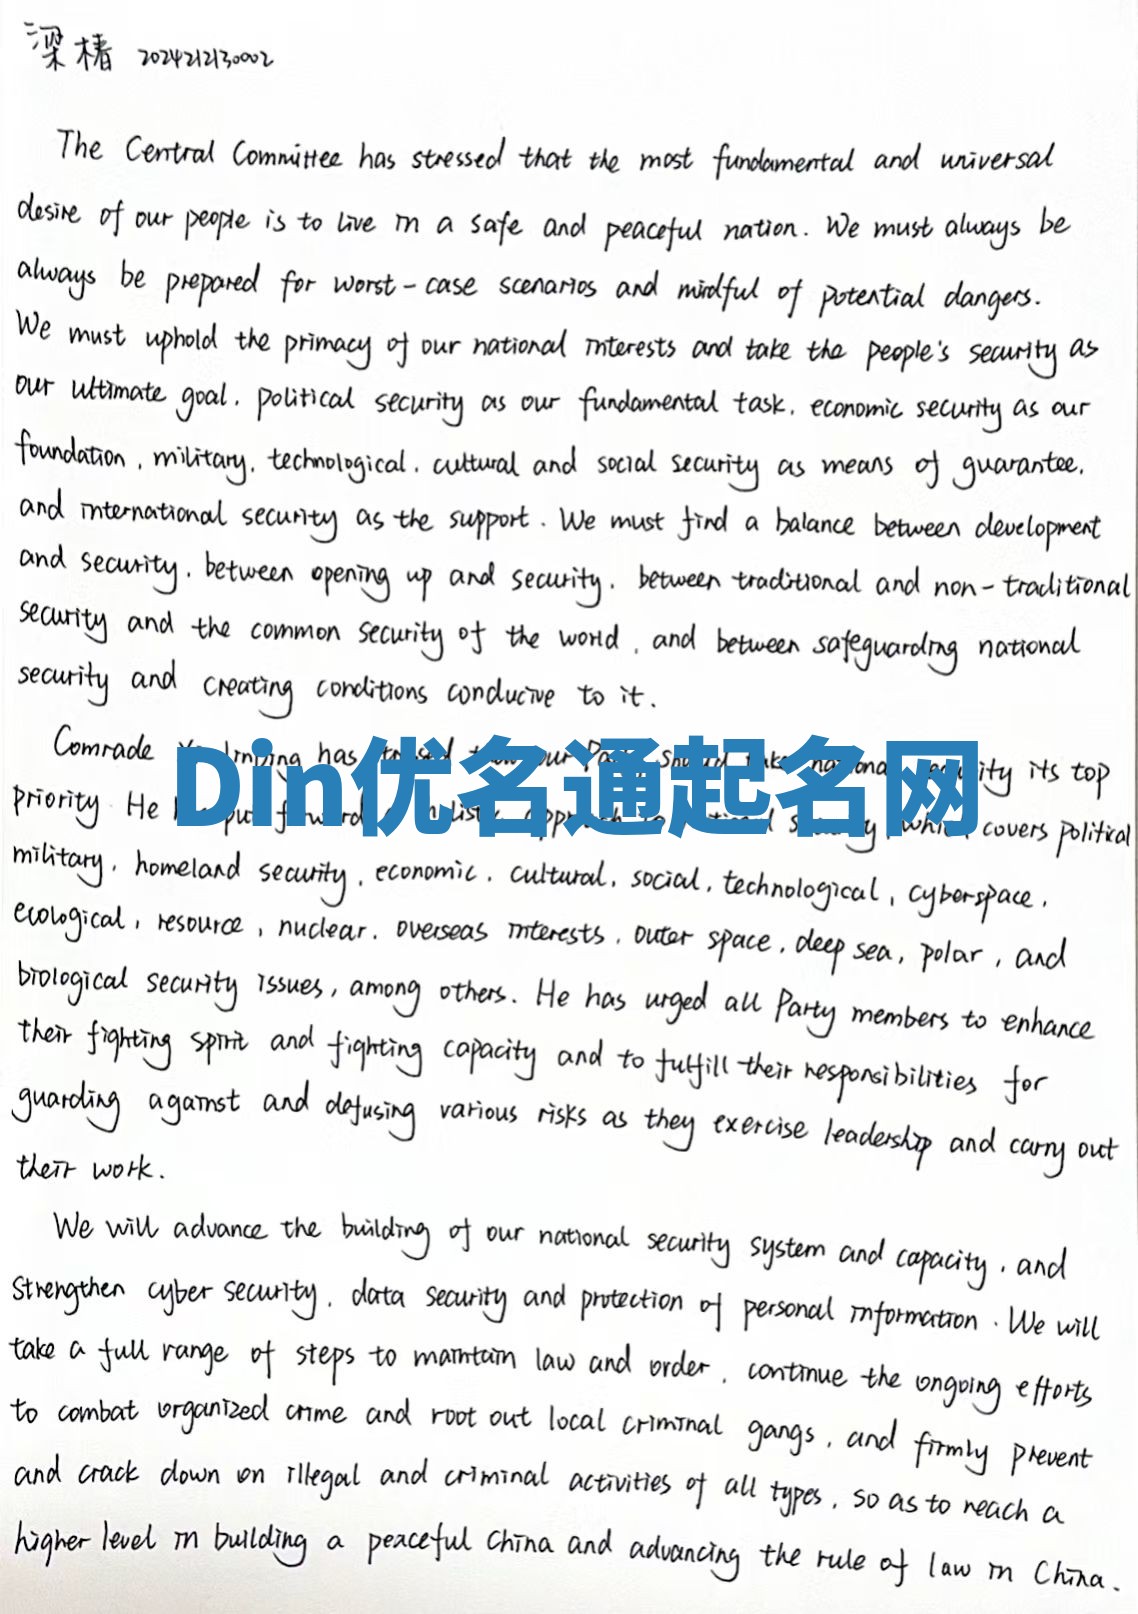 梁椿 2024212130002
The Central Committee has stressed that the most fundamental and universal
desire of our people is to live in a safe and peaceful nation. We must always be
always be prepared for worst-case scenarios and mindful of potential dangers.
We must uphold the primacy of our national interests and take the people's security as
our ultimate goal, political security as our fundamental task, economic security as our
foundation, military, technological, cultural and social security as means of guarantee,
and international security as the support. We must find a balance between development
and security, between opening up and security, between traditional and non-traditional
security and the common security of the world, and between safeguarding national
security and creating conditions conducive to it.
Comrade has our its top
priority. He forward covers political
Din优名通起名网
military, homeland security, economic, cultural, social, technological, cyberspace,
ecological, resource, nuclear, overseas interests, outer space, deep sea, polar, and
biological security issues, among others. He has urged all Party members to enhance
their fighting spirit and fighting capacity and to fulfill their responsibilities for
guarding against and defusing various risks as they exercise leadership and carry out
their work.
We will advance the building of our national security system and capacity, and
strengthen cyber security, data security and protection of personal information. We will
take a full range of steps to maintain law and order, continue the ongoing efforts
to combat organized crime and root out local criminal gangs, and firmly prevent
and crack down on illegal and criminal activities of all types, so as to reach a
higher level in building a peaceful China and advancing the rule of law in China.